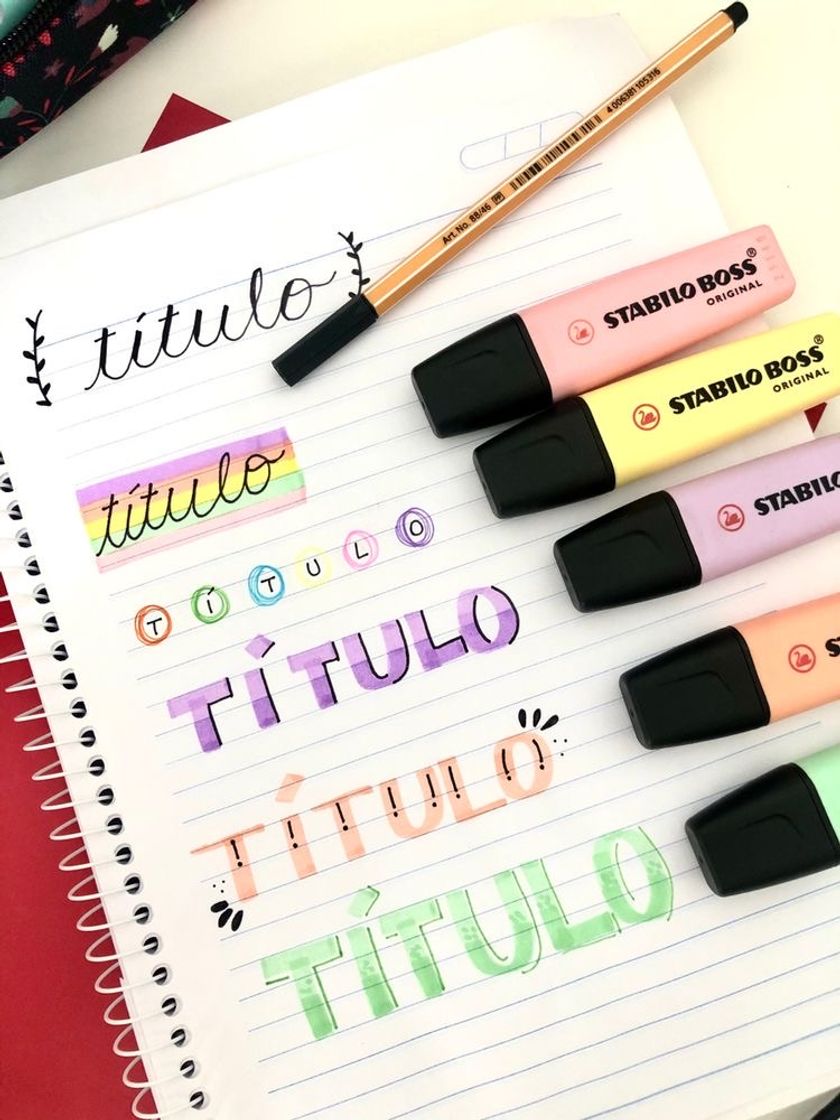 Art. No. 88/46
4 006381 105316
título
STABILO BOSS®
ORIGINAL
STABILO BOSS®
ORIGINAL
título
STABILO
TÍTULO
TÍTULO
TÍTULO
TÍTULO